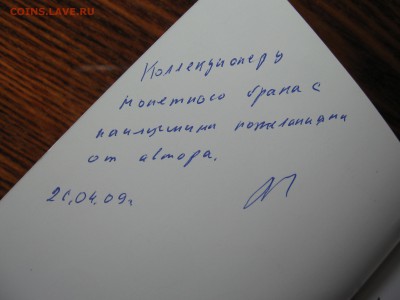 COINS.LAVE.RU
Коллекционеру
монетного брака с
наилучшими пожеланиями
от автора.
21.04.09г